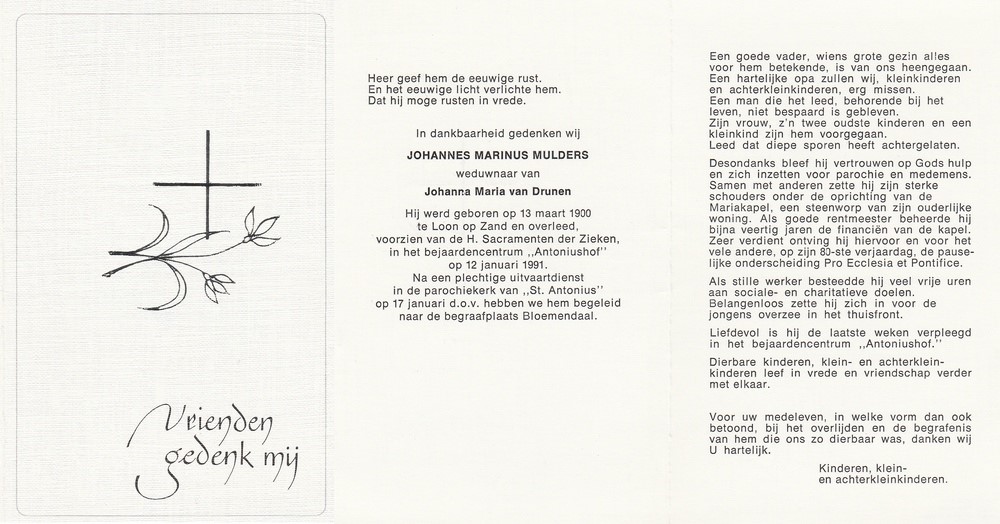 Vrienden
gedenk mij
Heer geef hem de eeuwige rust.
En het eeuwige licht verlichte hem.
Dat hij moge rusten in vrede.
In dankbaarheid gedenken wij
JOHANNES MARINUS MULDERS
weduwnaar van
Johanna Maria van Drunen
Hij werd geboren op 13 maart 1900
te Loon op Zand en overleed,
voorzien van de H. Sacramenten der Zieken,
in het bejaardencentrum ,,Antoniushof''
op 12 januari 1991.
Na een plechtige uitvaartdienst
in de parochiekerk van ,,St. Antonius''
op 17 januari d.o.v. hebben we hem begeleid
naar de begraafplaats Bloemendaal.
Een goede vader, wiens grote gezin alles
voor hem betekende, is van ons heengegaan.
Een hartelijke opa zullen wij, kleinkinderen
en achterkleinkinderen, erg missen.
Een man die het leed, behorende bij het
leven, niet bespaard is gebleven.
Zijn vrouw, z'n twee oudste kinderen en een
kleinkind zijn hem voorgegaan.
Leed dat diepe sporen heeft achtergelaten.
Desondanks bleef hij vertrouwen op Gods hulp
en zich inzetten voor parochie en medemens.
Samen met anderen zette hij zijn sterke
schouders onder de oprichting van de
Mariakapel, een steenworp van zijn ouderlijke
woning. Als goede rentmeester beheerde hij
bijna veertig jaren de financiën van de kapel.
Zeer verdient ontving hij hiervoor en voor het
vele andere, op zijn 80-ste verjaardag, de pause-
lijke onderscheiding Pro Ecclesia et Pontifice.
Als stille werker besteedde hij veel vrije uren
aan sociale- en charitatieve doelen.
Belangenloos zette hij zich in voor de
jongens overzee in het thuisfront.
Liefdevol is hij de laatste weken verpleegd
in het bejaardencentrum ,,Antoniushof.''
Dierbare kinderen, klein- en achterklein-
kinderen leef in vrede en vriendschap verder
met elkaar.
Voor uw medeleven, in welke vorm dan ook
betoond, bij het overlijden en de begrafenis
van hem die ons zo dierbaar was, danken wij
U hartelijk.
Kinderen, klein-
en achterkleinkinderen.